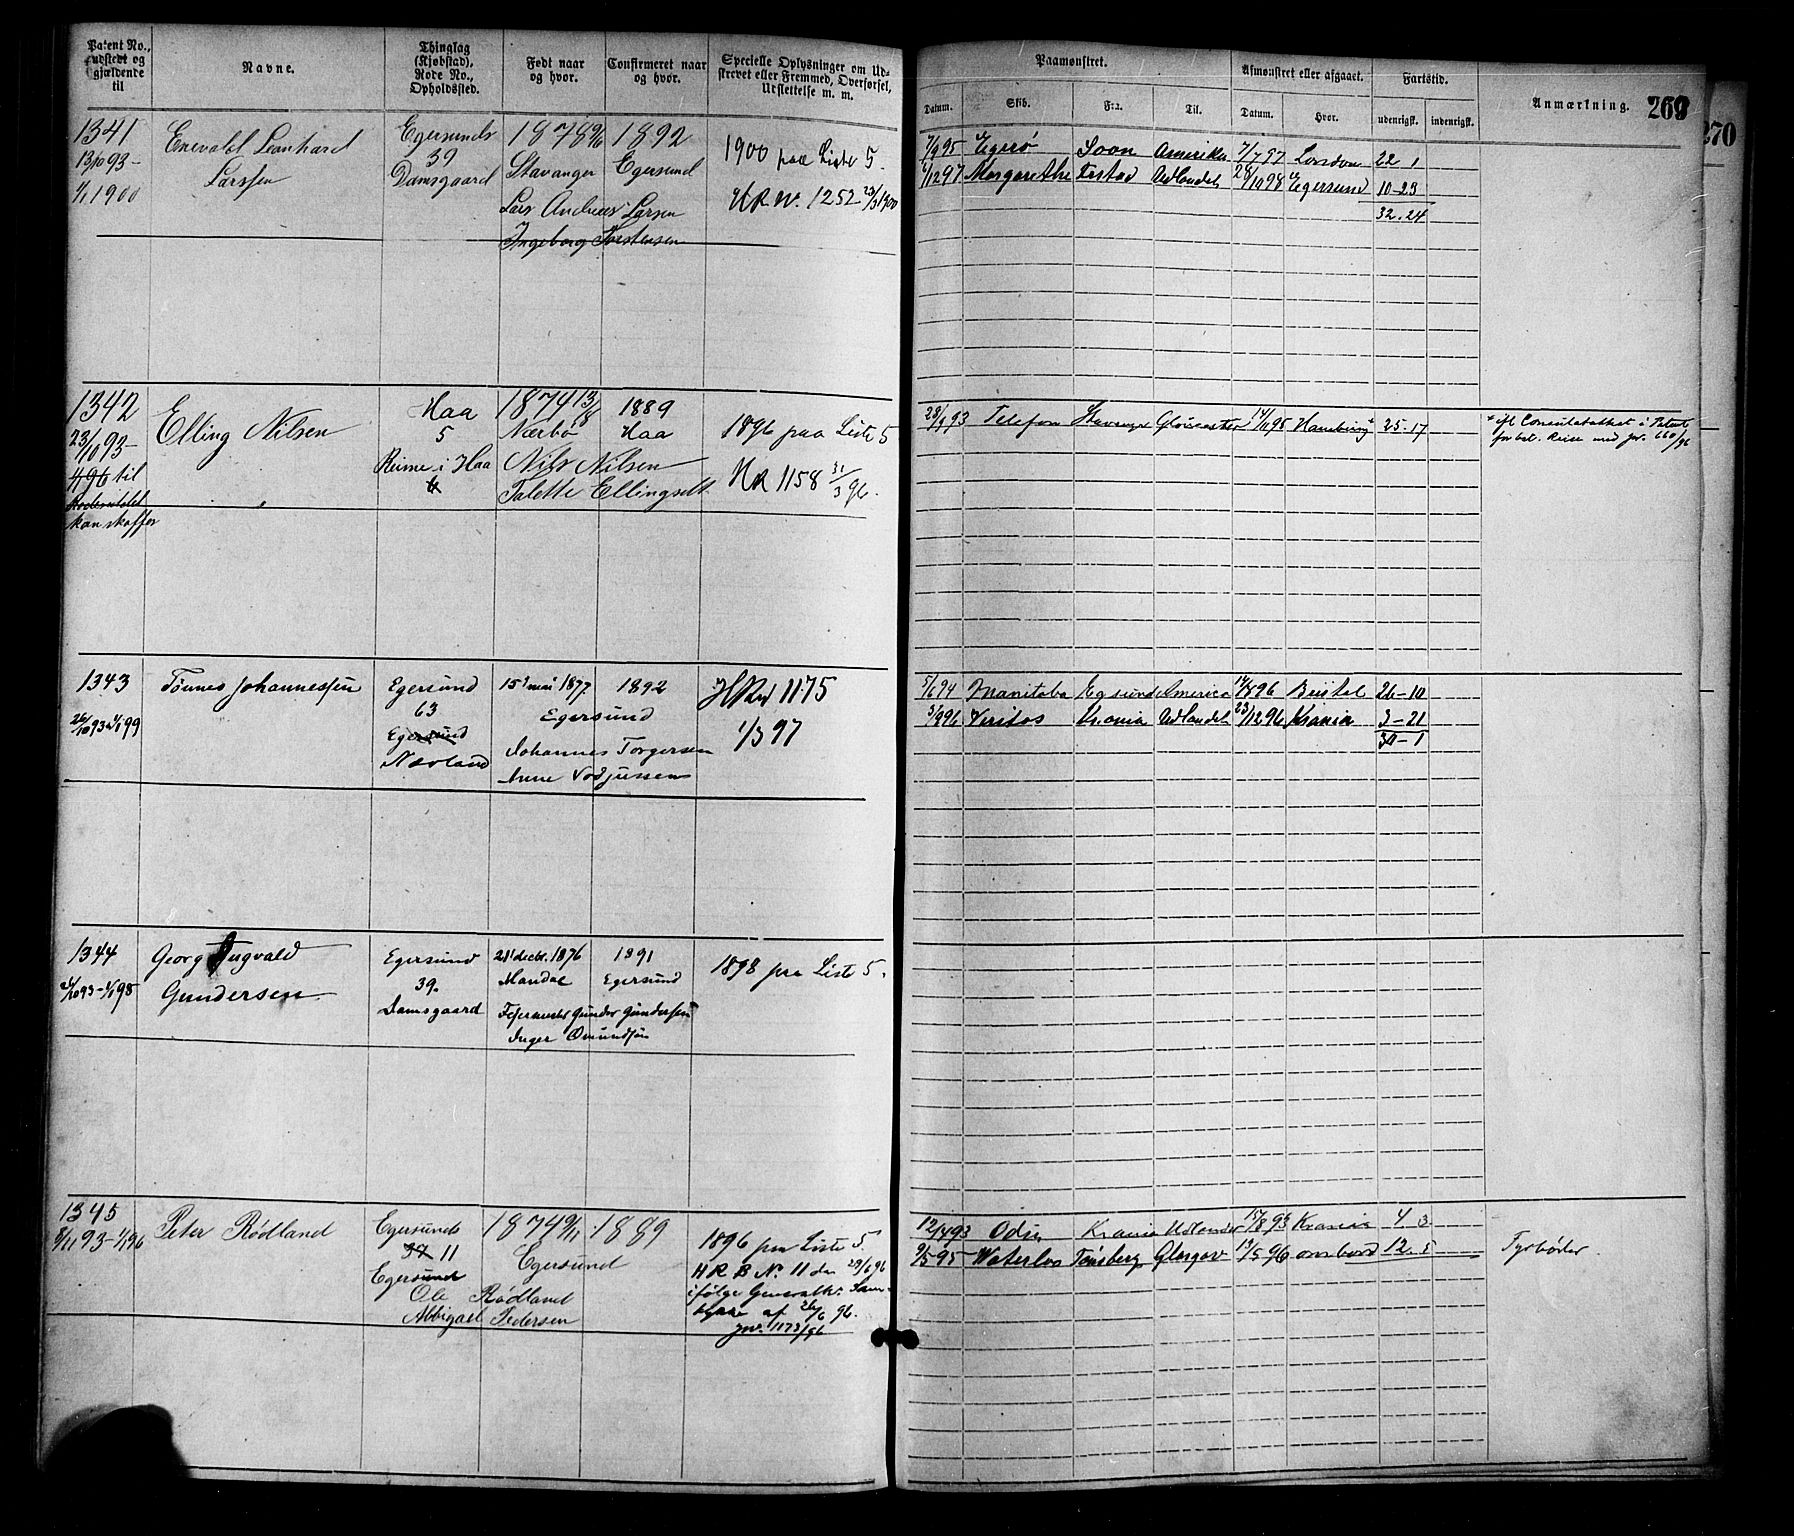 Patent No., udstedt og gjældende til
Navne.
Thinglag (Kjøbstad), Rode No., Opholdssted.
Født naar og hvor.
Confirmeret naar og hvor.
Specielle Oplysninger om Udskrevet eller Fremmed, Overførsel, Udslettelse m. m.
Paamønstret.
Afmønstret eller afgaaet.
Fartstid.
Anmærkning.
269
270
Datum. Skib. Fra. Til. Datum. Hvor. udenrigsk. indenrigsk.
1341
13/10 93 -
1/1 1900
Enevald Leonhard
Larssen
Egersunds
39
Damsgaard
1878
Stavanger
1892
Egersund
Lars Andreas Larsen
Ingeborg Torstensen
1900 paa Liste 5.
H R W. 1252 23/3 1900
7/9 95 Egerø Soon Amerika 7/7 97 London 22 1
Margarethe Udlandet 28/10 98 Egersund 10-23
32.24
1342
23/10 93 -
1/4 96 til
kan skaffes
Elling Nilsen
Haa
5
Reime i Haa
1874 13/8
Nærbø
1889
Haa
Nils Nilsen
Talette Ellingsdt
1896 paa Liste 5
H R 1158 31/3 96.
28/9 93 Telefon Stavanger Gloucester 14/11 95 Hamburg 25-17
1343
26/10 93 - 1/1 99
Tønnes Johannessen
Egersund
63
Egersund
Nævland
15' mai 1877
1892
Egersund
Johannes Torgersen
Anne
H Rw 1175
1/3 97
5/6 94 Manitoba Egersund America 14/8 96 Bristol 26-10
3/9 96 Veritas Krania Udlandet 23/12 96 Krania 3-21
30-1
1344
26/10 93 - 1/1 98
Georg Ingvald
Gundersen
Egersund
39.
Damsgaard
21' decbr. 1876
Mandal
1891
Egersund
Gunder Gundersen
Inger Omundsen
1898 paa Liste 5.
1345
8/11 93 - 1/1 96
Peter Rødland
Egersund
37 11
Egersund
1874 9/11
1889
Egersund
Ole Rødland
Abbigael Pedersen
1896 paa Liste 5.
H R B No. 11 den 29/6 96
ifølge
af 26/6 96.
Jnr. 1173/96
12/4 93 Odin Krania Udlandet 15/8 93 Krania 4 3
9/5 95 Waterloo Tønsberg Glasgow 13/5 96 ombord 12. 5
Fyrbøder.